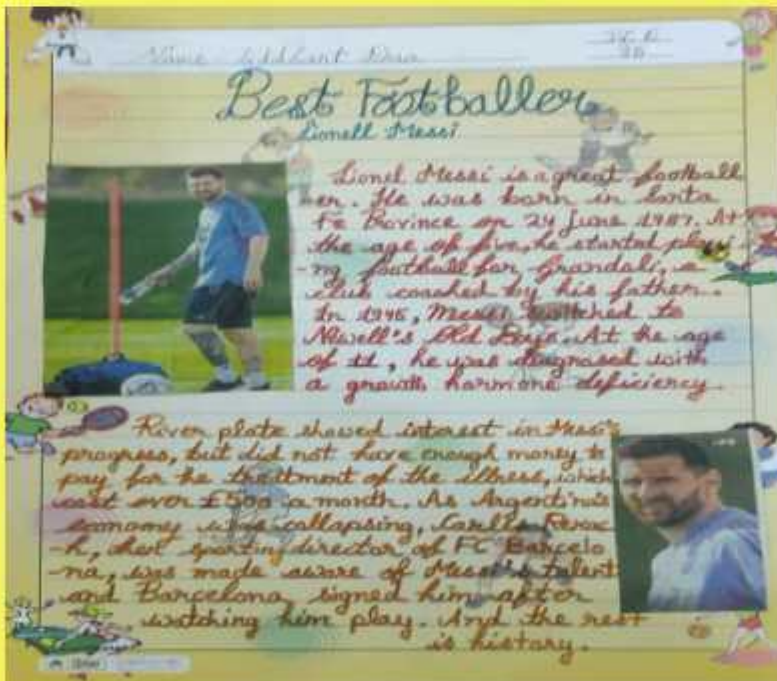 Name
Best Footballer
Lionell Messi
Lionel Messi is a great football
er. He was born in Santa
Fe Province on 24 June 1987. At
the age of five, he started playi
-ng football for Grandoli, a
club coached by his father.
In 1995, Messi switched to
Newell's Old Boys. At the age
of 11, he was diagnosed with
a growth hormone deficiency.
River plate showed interest in Messi's
progress, but did not have enough money to
pay for he treatment of the illness, which
cost over £500 a month. As Argentina's
economy was collapsing, Carles Rexac
-h, then sporting director of FC Barcelo
-na, was made aware of Messi's talent
and Barcelona signed him after
watching him play. And the rest
is history.